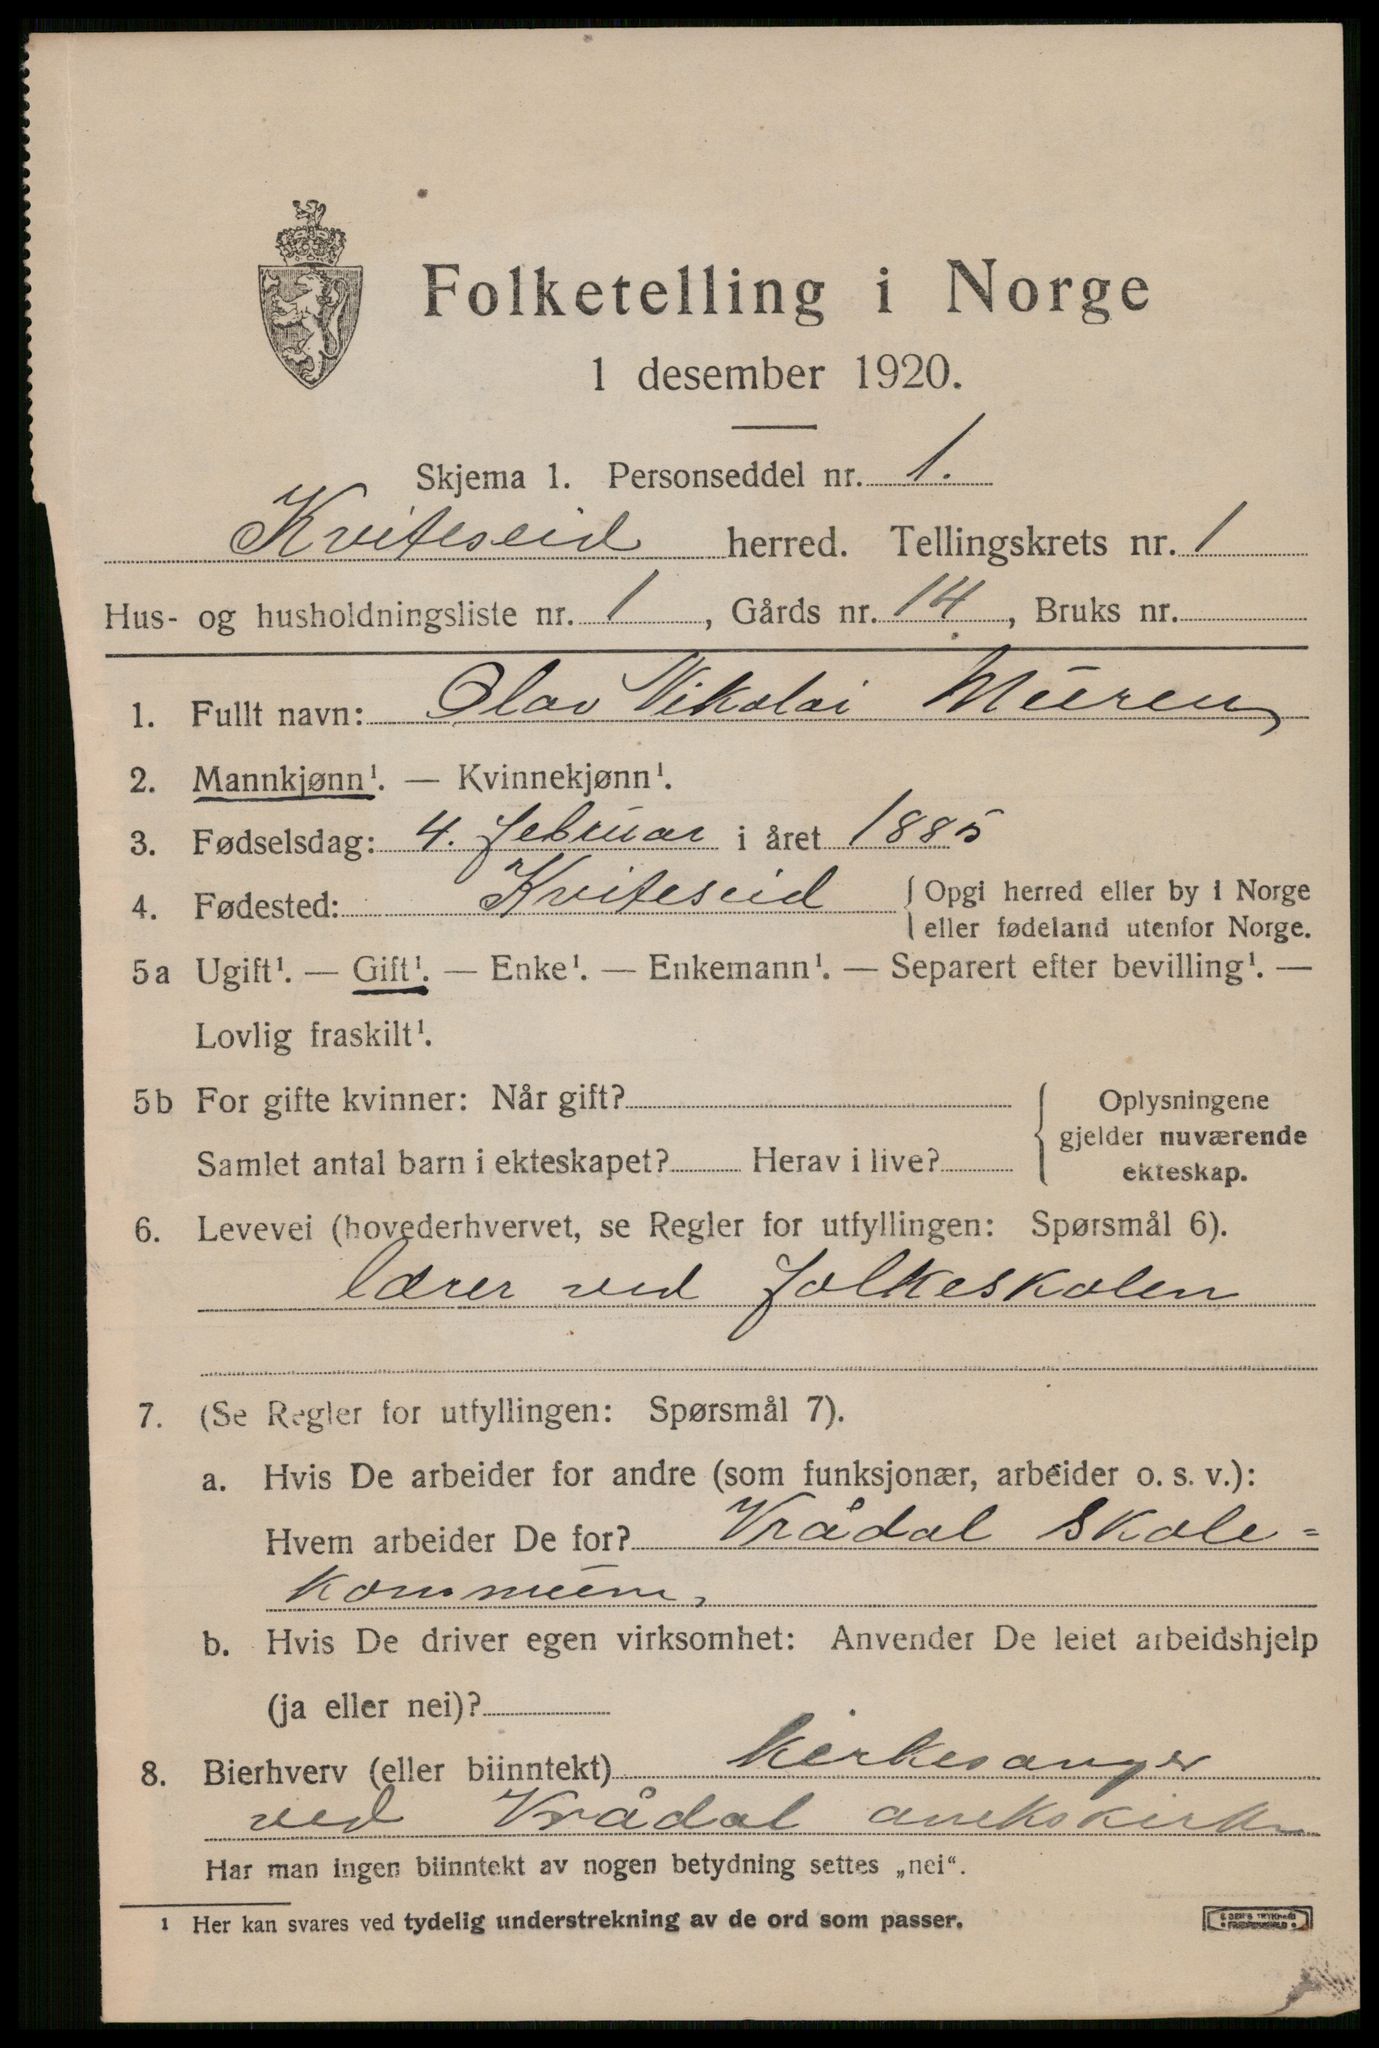 Folketelling i Norge
1 desember 1920.
Skjema 1. Personseddel nr. 1.
Kviteseid herred. Tellingskrets nr. 1
Hus- og husholdningsliste nr. 1, Gårds nr. 14, Bruks nr.
1. Fullt navn: Olav Nikolai Muren
2. Mannkjønn¹. — Kvinnekjønn¹.
3. Fødselsdag: 4. februar i året 1885
4. Fødested: Kviteseid { Opgi herred eller by i Norge
eller fødeland utenfor Norge.
5a Ugift¹. — Gift¹. — Enke¹. — Enkemann¹. — Separert efter bevilling¹. —
Lovlig fraskilt¹.
5b For gifte kvinner: Når gift?
Samlet antal barn i ekteskapet? Herav i live?
{ Oplysningene
gjelder nuværende
ekteskap.
6. Levevei (hovederhvervet, se Regler for utfyllingen: Spørsmål 6).
lærer ved folkeskolen
7. (Se Regler for utfyllingen: Spørsmål 7).
a. Hvis De arbeider for andre (som funksjonær, arbeider o. s. v.):
Hvem arbeider De for? Vrådal skole-
kommune,
b. Hvis De driver egen virksomhet: Anvender De leiet arbeidshjelp
(ja eller nei)?
8. Bierhverv (eller biinntekt) kirkesanger
ved Vrådal anekskirke
Har man ingen biinntekt av nogen betydning settes „nei“.
¹ Her kan svares ved tydelig understrekning av de ord som passer.